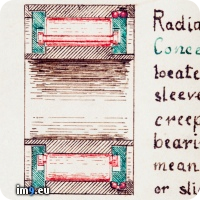 Radia
Conce
locate
sleeve
creep
bearin
mean
or sli
im9.eu